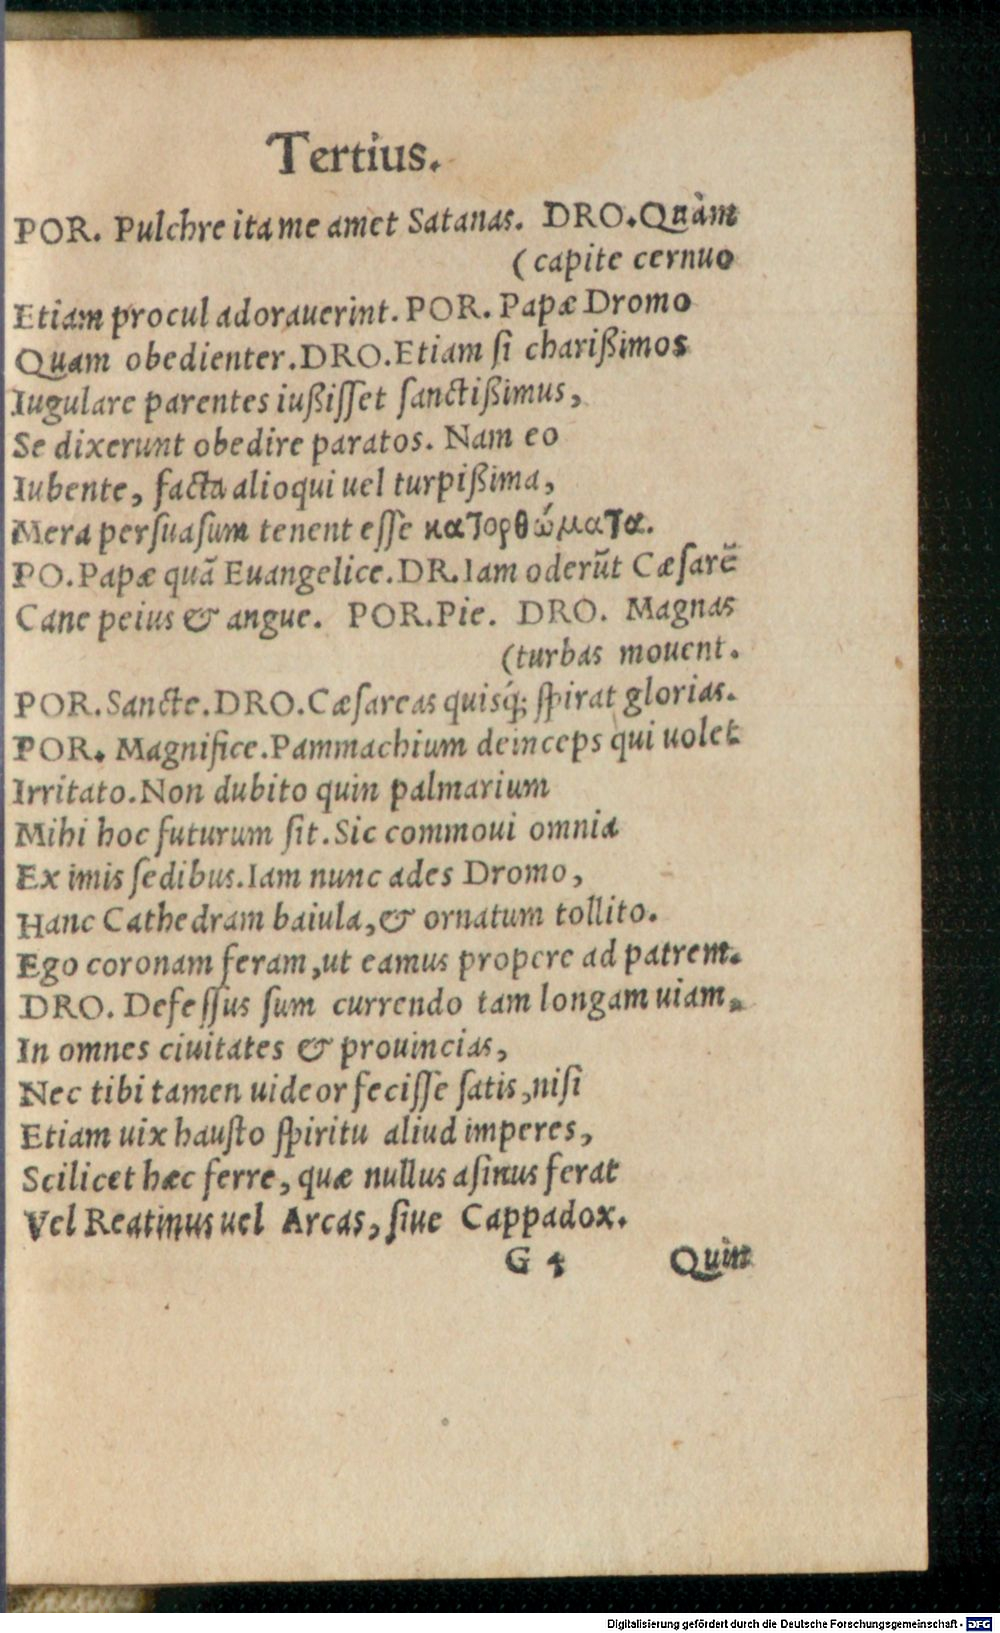 Tertius.
POR. Pulchre ita me amet Satanas. DRO. Quàm
(capite cernuo
Etiam procul adorauerint. POR. Papæ Dromo
Quam obedienter. DRO. Etiam ſi charißimos
Iugulare parentes iußiſſet ſanctißimus,
Se dixerunt obedire paratos. Nam eo
Iubente, facta alioqui uel turpißima,
Mera perſuaſum tenent eſſe κατορθώματα.
PO. Papæ quã Euangelice. DR. Iam oderũt Cæſarẽ
Cane peius & angue. POR. Pie. DRO. Magnas
(turbas mouent.
POR. Sancte. DRO. Cæſareas quiſq́; ſpirat glorias.
POR. Magnifice. Pammachium deinceps qui uolet
Irritato. Non dubito quin palmarium
Mihi hoc futurum ſit. Sic commoui omnia
Ex imis ſedibus. Iam nunc ades Dromo,
Hanc Cathedram baiula, & ornatum tollito.
Ego coronam feram, ut eamus propere ad patrem.
DRO. Defeſſus ſum currendo tam longam uiam.
In omnes ciuitates & prouincias,
Nec tibi tamen uideor feciſſe ſatis, niſi
Etiam uix hauſto ſpiritu aliud imperes,
Scilicet hæc ferre, quæ nullus aſinus ferat
Vel Reatinus uel Arcas, ſiue Cappadox.
G 4 Quin
Digitalisierung gefördert durch die Deutsche Forschungsgemeinschaft - DFG